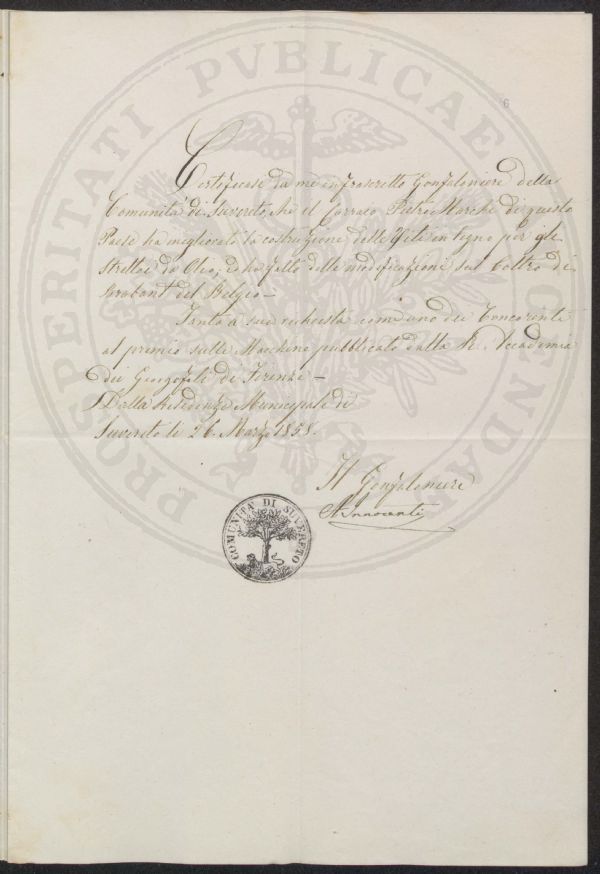 6
Certificasi da me infrascritto Gonfaloniere della
Comunità di Suvereto, che il Carraio Pietro Marchi di questo
Paese ha megliorato la costruzione delle Viti in legno per gli
Strettoi da Olio, e ha fatto delle modificazioni sul Coltro di
Brabant del Belgio —
Tanto a sua richiesta come uno dei Concorenti
al premio sulle Macchine pubblicato dalla R. Accademia
dei Georgofili di Firenze —
Dalla Residenza Municipale di
Suvereto li 26. Marzo 1858.
Il Gonfaloniere
A. Innocenti
COMUNITÀ DI SUVERETO
PROSPERITATI PVBLICAE AUGENDAE